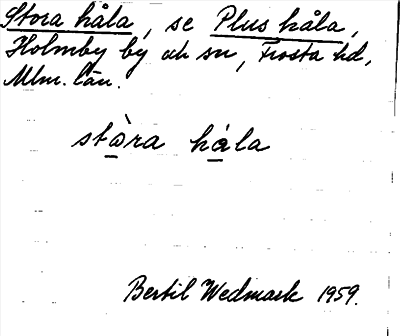 Stora håla, se Plus håla,
Holmby by ah sn, Frosta hd,
Mlm. län.
stàra hála
Bertil Wedmark 1959.